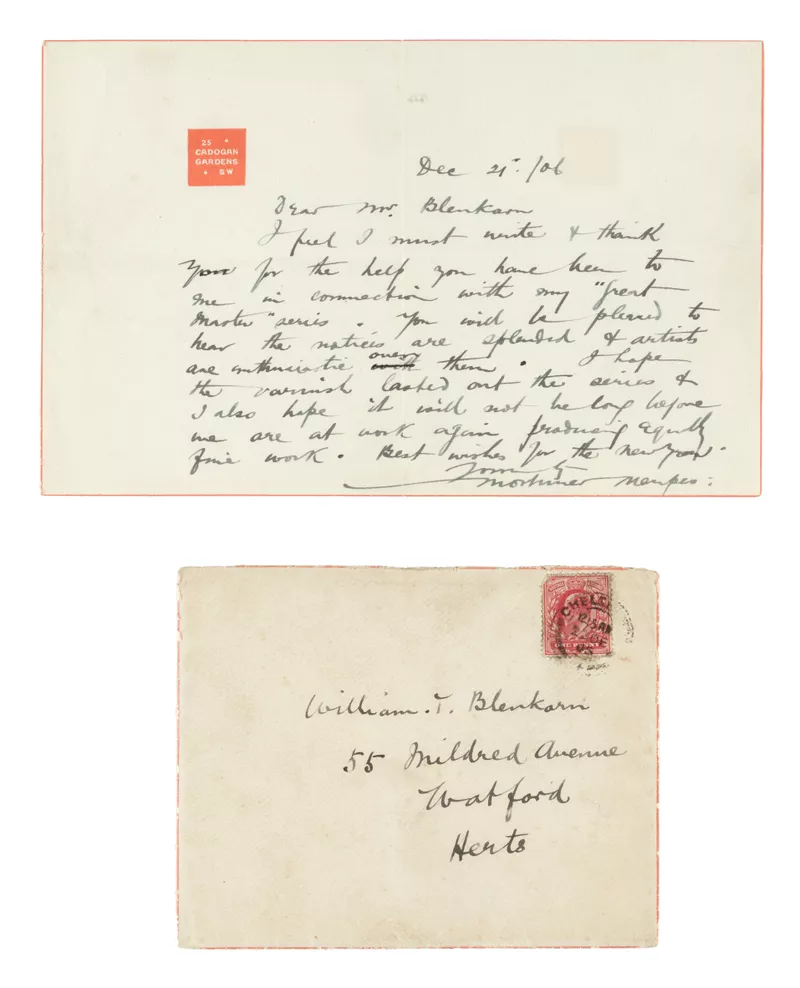 25
CADOGAN
GARDENS
SW
Dec 21st. /06
Dear Mr. Blenkarn
I feel I must write & thank
You for the help you have been to
me in connection with my "Great
Master" series. You will be pleased to
hear the notices are splendid & artists
are enthusiastic over them. I hope
the varnish lasted out the series &
I also hope it will not be long before
we are at work again producing equally
fine work. Best wishes for the new year.
Mortimer Menpes:
CHELSEA
12.15 AM
22 DE
ONE PENNY
William. T. Blenkarn
55 Mildred Avenue
Watford
Herts